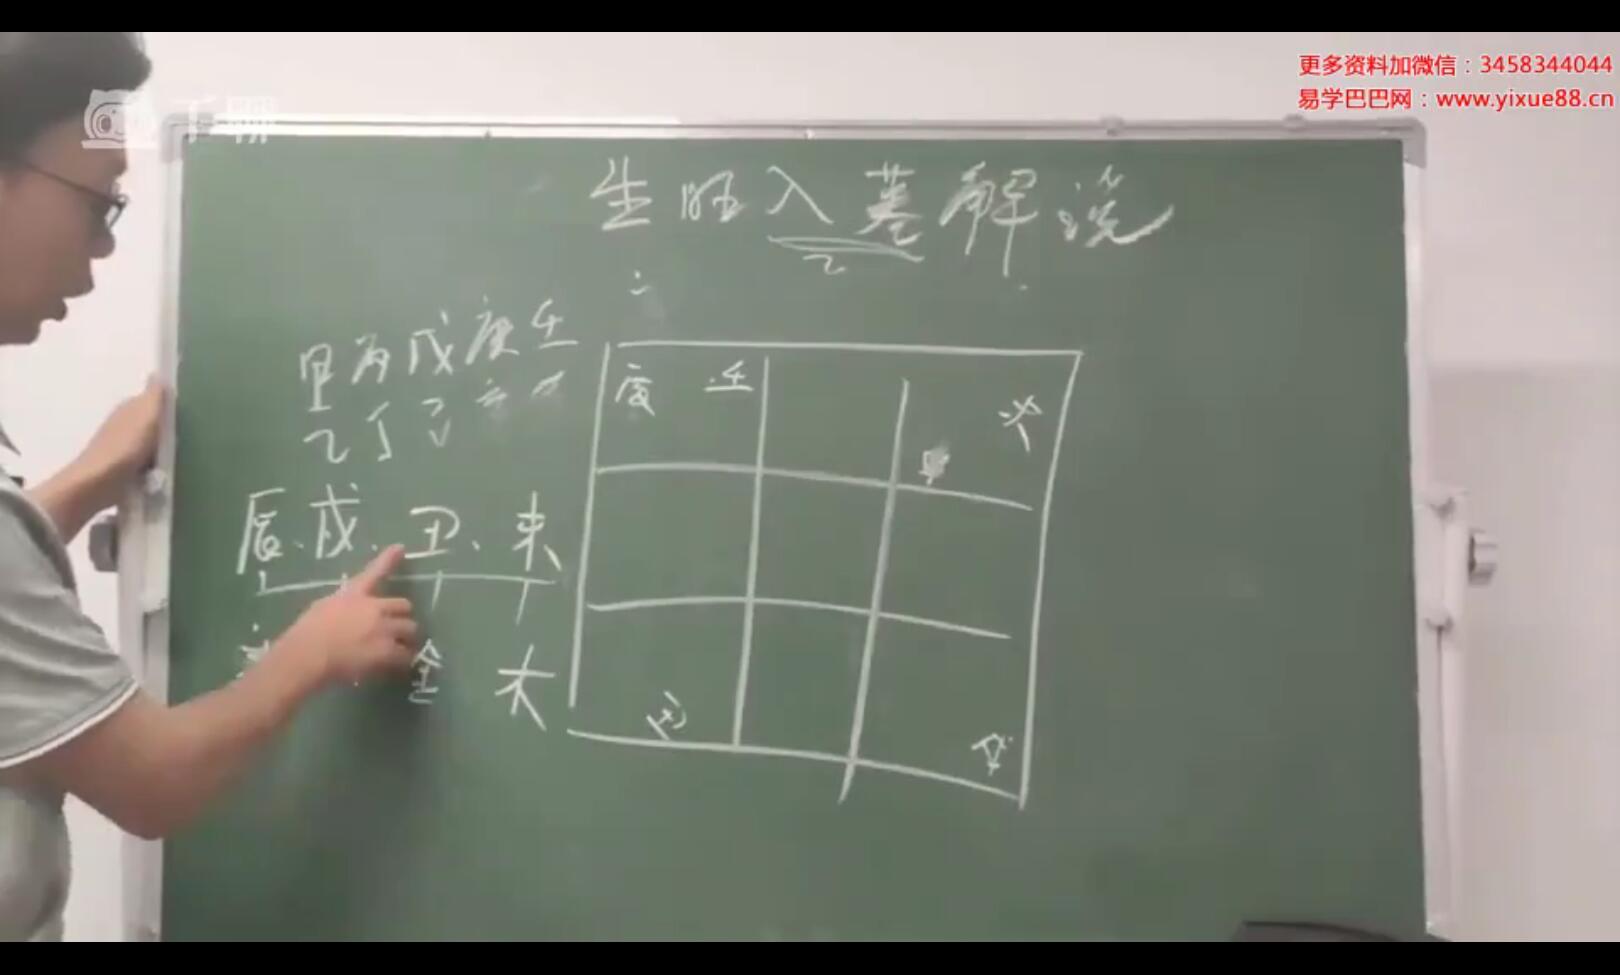 更多资料加微信：3458344044
易学巴巴网：www.yixue88.cn
千聊
生旺入墓解说
甲丙戊庚壬
乙丁
辰、戌、丑、未
金 木
辰 壬
未
丑